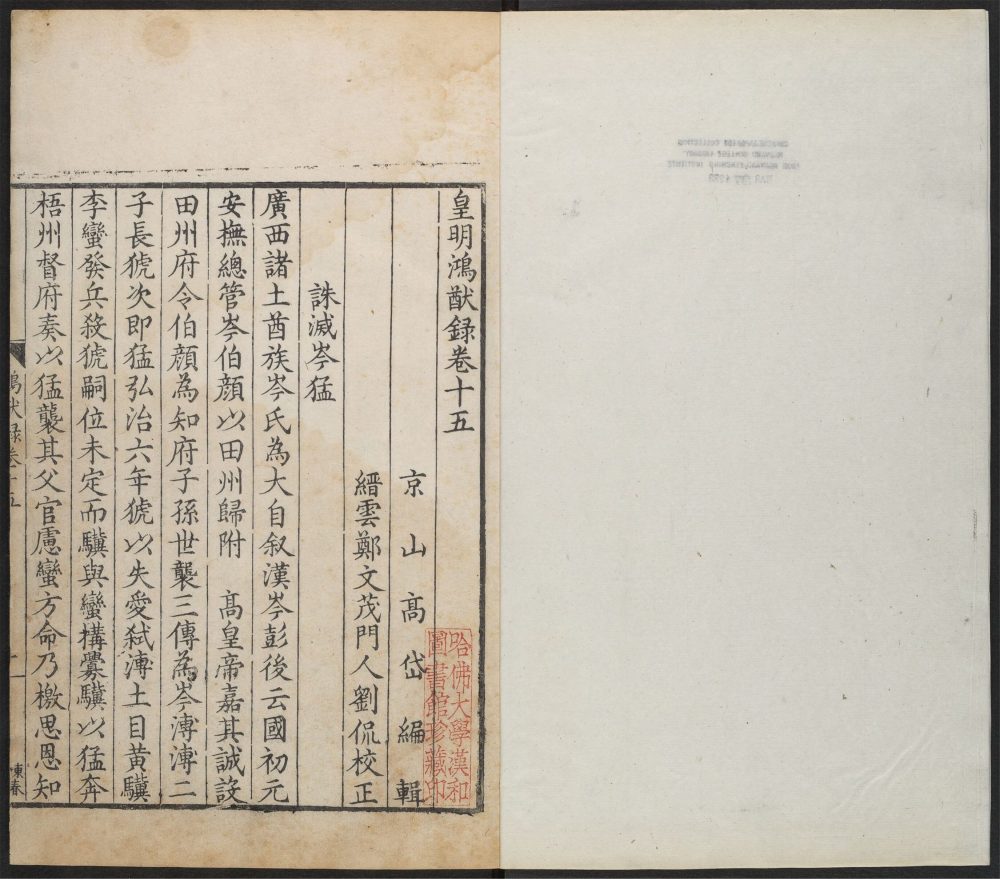 皇明鴻猷録卷十五
京山髙岱編輯
縉雲鄭文茂門人劉侃校正
誅滅岑猛
廣西諸土酋族岑氏為大自叙漢岑彭後云國初元
安撫總管岑伯顔以田州歸附 髙皇帝嘉其誠設
田州府令伯顔為知府子孫世襲三傳為岑溥溥二
子長猇次即猛弘治六年猇以失愛弑溥土目黄驥
李蠻發兵殺猇嗣位未定而驥與蠻搆釁驥以猛奔
梧州督府奏以猛襲其父官慮蠻方命乃檄思恩知
鴻猷録卷十五
一
哈佛大學漢和
圖書館珍藏印